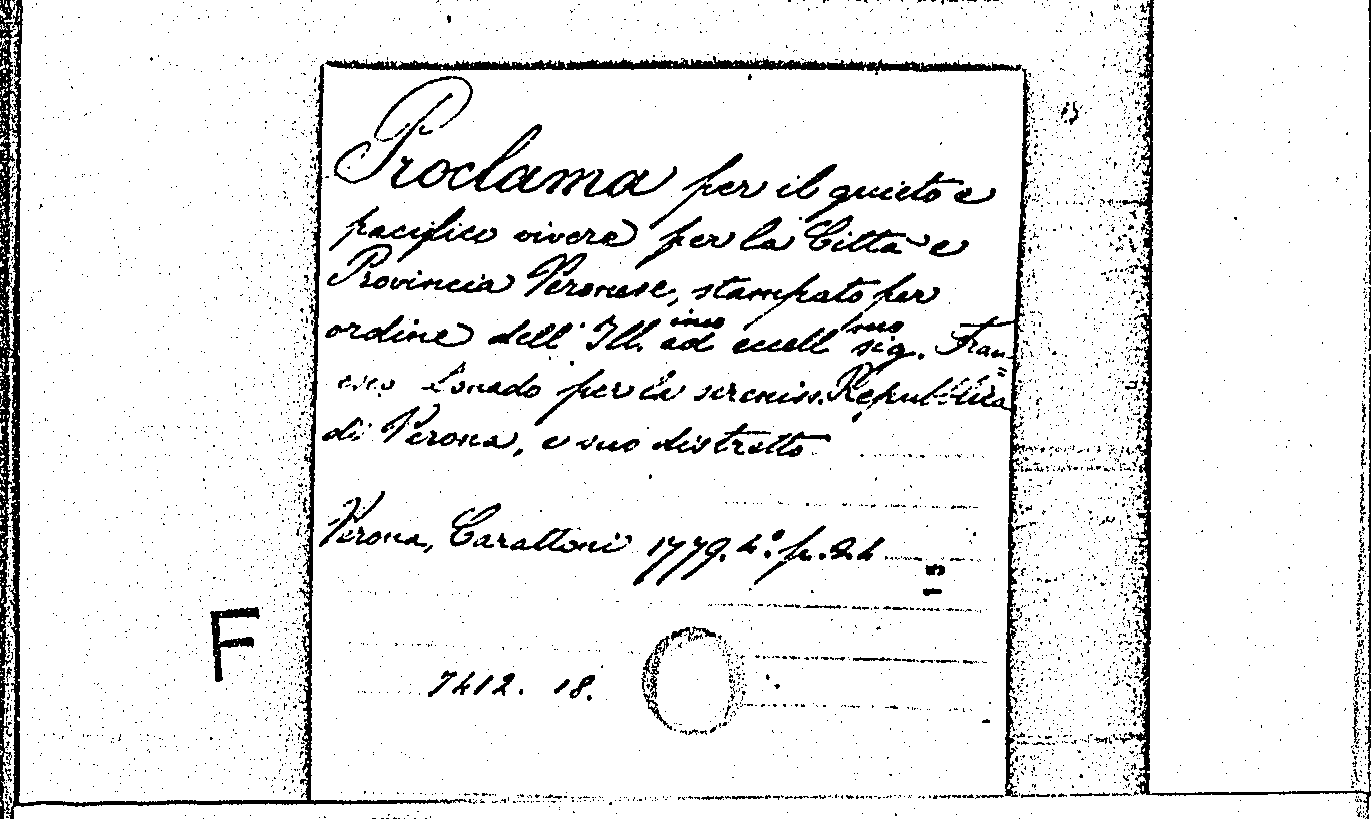 Proclama per il quieto e
pacifico vivere per la Città e
Provincia Veronese, stampato per
ordine dell' Ill.imo ed eccell.mo sig. Fran=
cesco Donado per la sereniss. Repubblica
di Verona, e suo distretto
Verona, Carattoni 1779. 4.° p. 24
F
7412. 18.